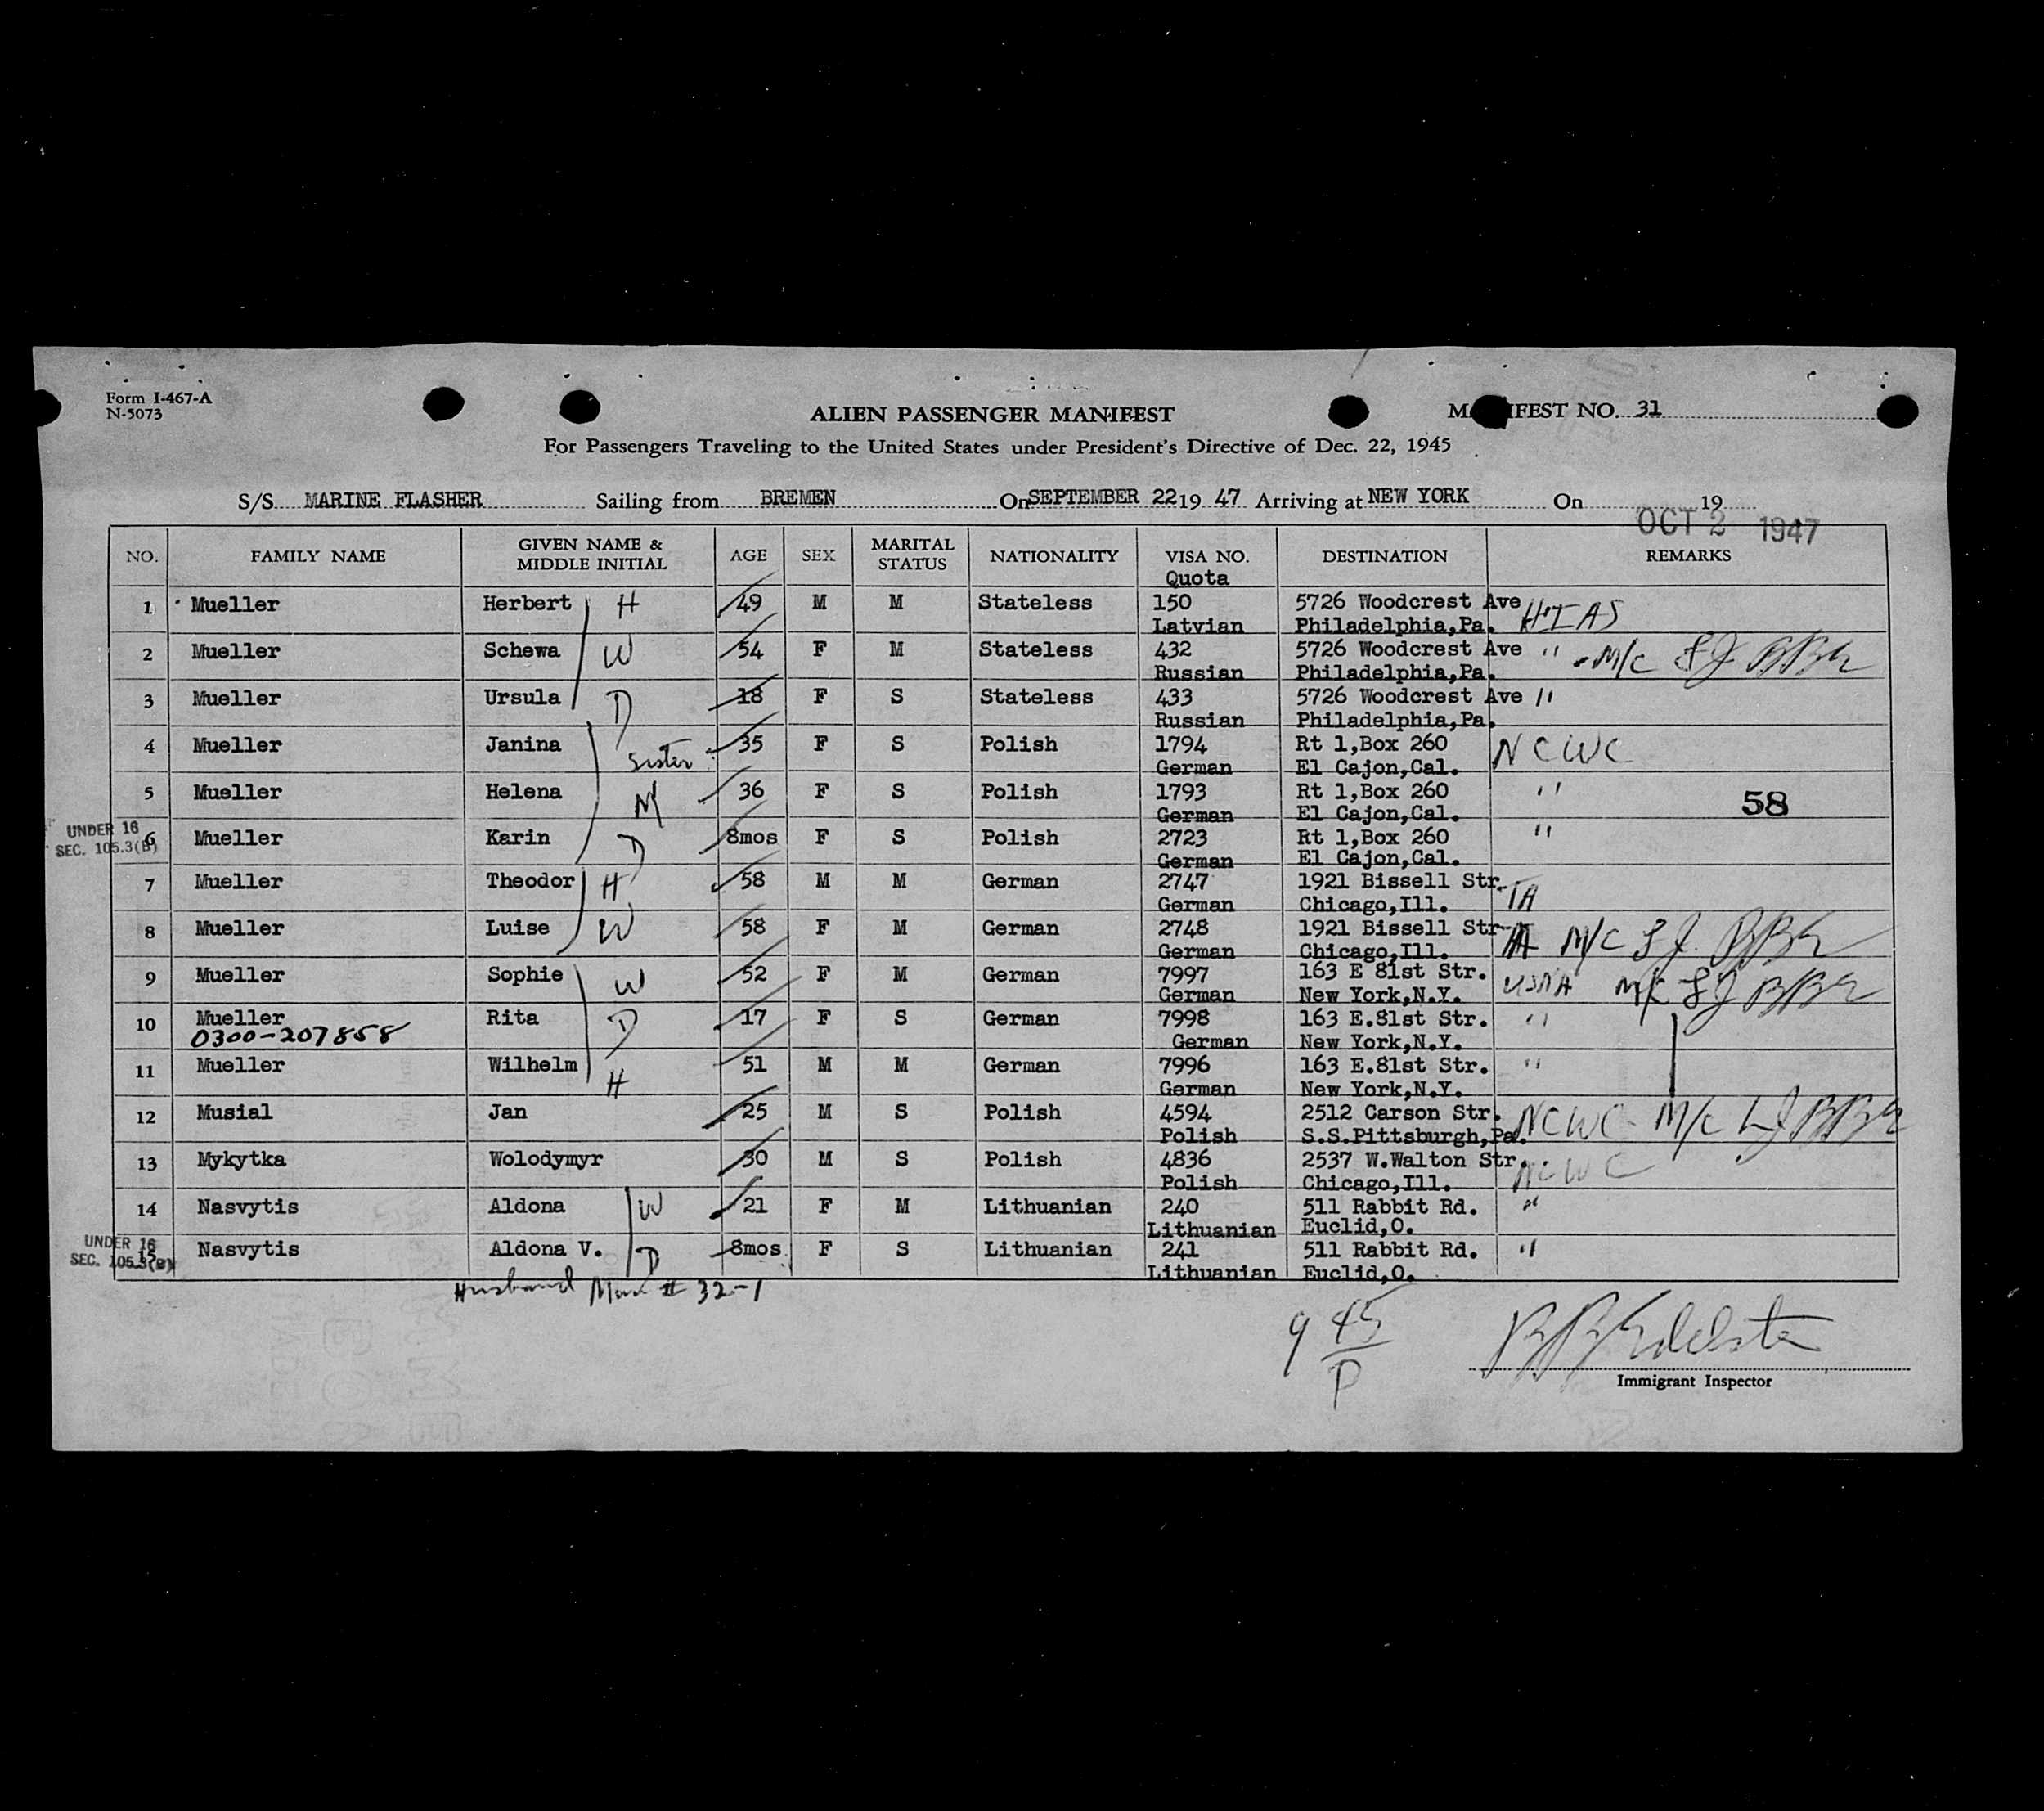 Form I-467-A
N-5073
ALIEN PASSENGER MANIFEST
MANIFEST NO. 31
For Passengers Traveling to the United States under President's Directive of Dec. 22, 1945
S/S MARINE FLASHER Sailing from BREMEN On SEPTEMBER 22 19 47 Arriving at NEW YORK On 19
OCT 2 1947
NO. FAMILY NAME GIVEN NAME & MIDDLE INITIAL AGE SEX MARITAL STATUS NATIONALITY VISA NO. Quota DESTINATION REMARKS
1 Mueller Herbert H 49 M M Stateless 150 5726 Woodcrest Ave HIAS
Latvian Philadelphia,Pa.
2 Mueller Schewa W 54 F M Stateless 432 5726 Woodcrest Ave " M/C
Russian Philadelphia,Pa.
3 Mueller Ursula D 18 F S Stateless 433 5726 Woodcrest Ave "
Russian Philadelphia,Pa.
4 Mueller Janina Sister 35 F S Polish 1794 Rt 1,Box 260 NCWC
German El Cajon,Cal.
5 Mueller Helena M 36 F S Polish 1793 Rt 1,Box 260 "
German El Cajon,Cal.
58
UNDER 16
SEC. 105.3(B)
6 Mueller Karin D 8mos F S Polish 2723 Rt 1,Box 260 "
German El Cajon,Cal.
7 Mueller Theodor H 58 M M German 2747 1921 Bissell Str. TA
German Chicago,Ill.
8 Mueller Luise W 58 F M German 2748 1921 Bissell Str M/C
German Chicago,Ill.
9 Mueller Sophie W 52 F M German 7997 163 E 81st Str. M/C
German New York,N.Y.
10 Mueller Rita D 17 F S German 7998 163 E.81st Str. "
0300-207858 German New York,N.Y.
11 Mueller Wilhelm H 51 M M German 7996 163 E.81st Str. "
German New York,N.Y.
12 Musial Jan 25 M S Polish 4594 2512 Carson Str. NCWC M/C
Polish S.S.Pittsburgh,Pa.
13 Mykytka Wolodymyr 30 M S Polish 4836 2537 W.Walton Str. NCWC
Polish Chicago,Ill.
14 Nasvytis Aldona W 21 F M Lithuanian 240 511 Rabbit Rd. "
Lithuanian Euclid,O.
UNDER 16
SEC. 105.3(B)
15 Nasvytis Aldona V. D 8mos F S Lithuanian 241 511 Rabbit Rd. "
Lithuanian Euclid,O.
Husband Man # 32-1
9 45
P
Immigrant Inspector